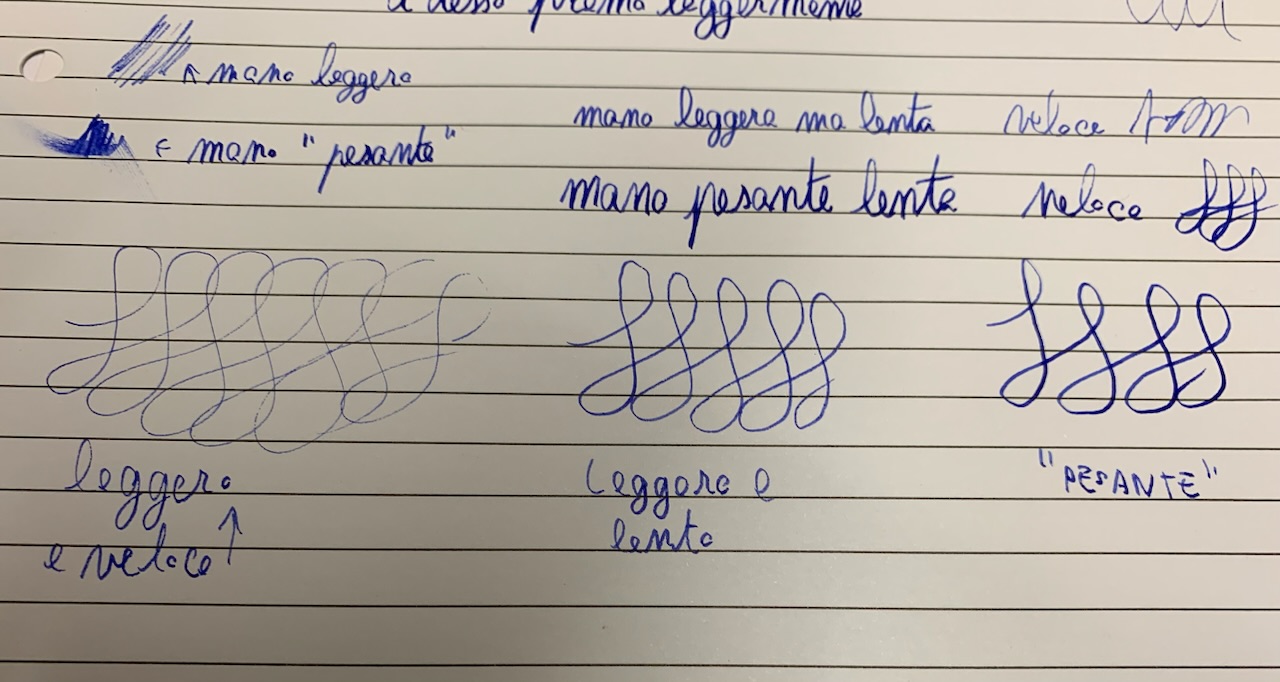 adesso premo leggermente
mano leggera
mano "pesante"
mano leggera ma lenta veloce
mano pesante lenta veloce
leggero
e veloce
leggero e
lento
"PESANTE"